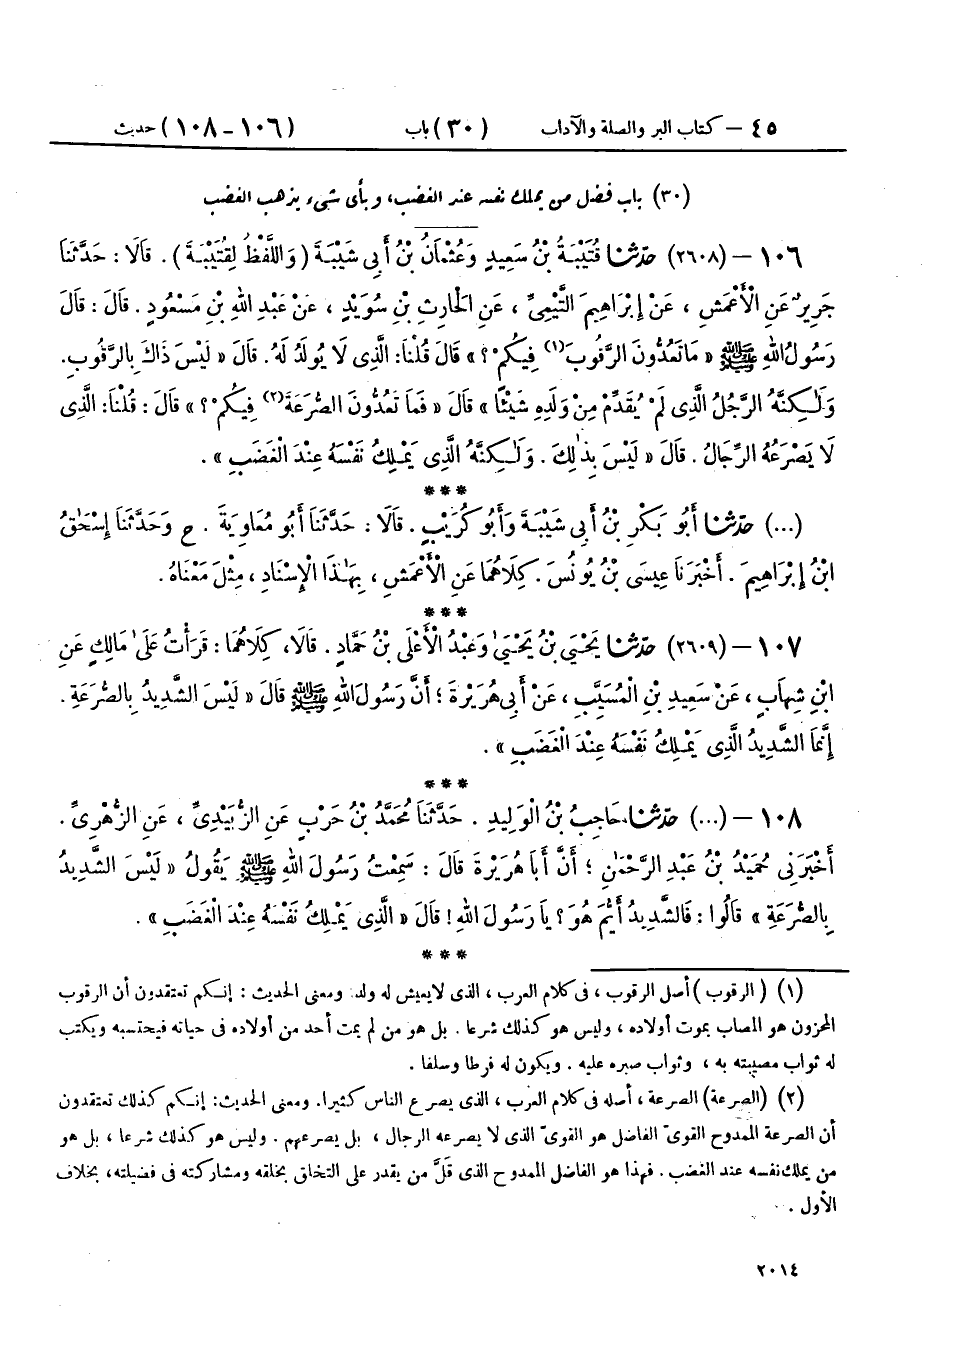 ٤٥ – كتاب البر والصلة والآداب (٣٠) باب (١٠٦-١٠٨) حديث
(٣٠) باب فضل من يملك نفسه عند الغضب، وبأى شىء يذهب الغضب
١٠٦ – (٢٦٠٨) حدّثنا قُتَيْبَةُ بْنُ سَعِيدٍ وَعُثْمَانُ بْنُ أَبِى شَيْبَةَ (وَاللَّفْظُ لِقُتَيْبَةَ). قَالَا: حَدَّثَنَا
جَرِيرٌ عَنِ الْأَعْمَشِ، عَنْ إِبْرَاهِيمَ التَّيْمِىِّ، عَنِ الْحَارِثِ بْنِ سُوَيْدٍ، عَنْ عَبْدِ اللهِ بْنِ مَسْعُودٍ. قَالَ: قَالَ
رَسُولُ اللهِ ﷺ « مَا تَعُدُّونَ الرَّقُوبَ(١) فِيكُمْ؟ » قَالَ قُلْنَا: الَّذِى لَا يُولَدُ لَهُ. قَالَ « لَيْسَ ذَاكَ بِالرَّقُوبِ.
وَلَـٰكِنَّهُ الرَّجُلُ الَّذِى لَمْ يُقَدِّمْ مِنْ وَلَدِهِ شَيْئًا » قَالَ « فَمَا تَعُدُّونَ الصُّرَعَةَ(٢) فِيكُمْ؟ » قَالَ: قُلْنَا: الَّذِى
لَا يَصْرَعُهُ الرِّجَالُ. قَالَ « لَيْسَ بِذَٰلِكَ. وَلَـٰكِنَّهُ الَّذِى يَمْلِكُ نَفْسَهُ عِنْدَ الْغَضَبِ ».
***
(...) حدّثنا أَبُو بَكْرِ بْنُ أَبِى شَيْبَةَ وَأَبُو كُرَيْبٍ. قَالَا: حَدَّثَنَا أَبُو مُعَاوِيَةَ. ح وَحَدَّثَنَا إِسْحَٰقُ
ابْنُ إِبْرَاهِيمَ. أَخْبَرَنَا عِيسَى بْنُ يُونُسَ. كِلَاهُمَا عَنِ الْأَعْمَشِ، بِهَٰذَا الْإِسْنَادِ، مِثْلَ مَعْنَاهُ.
***
١٠٧ – (٢٦٠٩) حدّثنا يَحْيَى بْنُ يَحْيَىٰ وَعَبْدُ الْأَعْلَى بْنُ حَمَّادٍ. قَالَا، كِلَاهُمَا: قَرَأْتُ عَلَىٰ مَالِكٍ عَنِ
ابْنِ شِهَابٍ، عَنْ سَعِيدِ بْنِ الْمُسَيَّبِ، عَنْ أَبِى هُرَيْرَةَ؛ أَنَّ رَسُولَ اللهِ ﷺ قَالَ « لَيْسَ الشَّدِيدُ بِالصُّرَعَةِ.
إِنَّمَا الشَّدِيدُ الَّذِى يَمْلِكُ نَفْسَهُ عِنْدَ الْغَضَبِ ».
***
١٠٨ – (...) حدّثنا حَاجِبُ بْنُ الْوَلِيدِ. حَدَّثَنَا مُحَمَّدُ بْنُ حَرْبٍ عَنِ الزُّبَيْدِىِّ، عَنِ الزُّهْرِىِّ.
أَخْبَرَنِى حُمَيْدُ بْنُ عَبْدِ الرَّحْمَٰنِ؛ أَنَّ أَبَا هُرَيْرَةَ قَالَ: سَمِعْتُ رَسُولَ اللهِ ﷺ يَقُولُ « لَيْسَ الشَّدِيدُ
بِالصُّرَعَةِ » قَالُوا: فَالشَّدِيدُ أَيُّمَ هُوَ؟ يَا رَسُولَ اللهِ! قَالَ « الَّذِى يَمْلِكُ نَفْسَهُ عِنْدَ الْغَضَبِ ».
***
(١) (الرقوب) أصل الرقوب، فى كلام العرب، الذى لايعيش له ولد. ومعنى الحديث: إنكم تعتقدون أن الرقوب
المحزون هو المصاب بموت أولاده، وليس هو كذلك شرعا. بل هو من لم يمت أحد من أولاده فى حياته فيحتسبه ويكتب
له ثواب مصيبته به، وثواب صبره عليه. ويكون له فرطا وسلفا.
(٢) (الصرعة) الصرعة، أصله فى كلام العرب، الذى يصرع الناس كثيرا. ومعنى الحديث: إنكم كذلك تعتقدون
أن الصرعة الممدوح القوىّ الفاضل هو القوىّ الذى لا يصرعه الرجال، بل يصرعهم. وليس هو كذلك شرعا، بل هو
من يملك نفسه عند الغضب. فهذا هو الفاضل الممدوح الذى قلَّ من يقدر على التخلق بخلقه ومشاركته فى فضيلته، بخلاف
الأول.
٢٠١٤